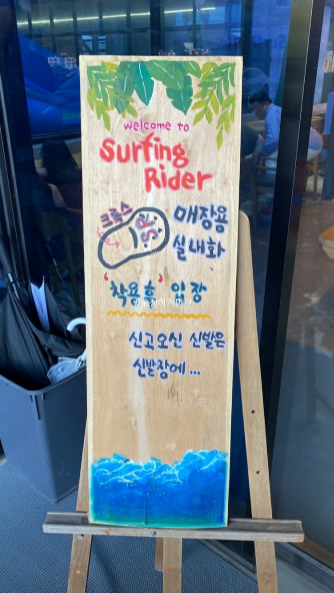 welcome to
Surfing
Rider
크록스
매장용
실내화
'착용 후' 입장
신고오신 신발은
신발장에...